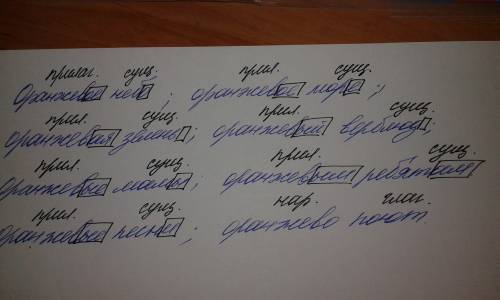 прилаг. сущ. прил. сущ.
Оранжевое небо; оранжевое море;
прил. сущ. прил. сущ.
оранжевая зелень; оранжевый верблюд;
прил. сущ. прил. сущ.
Оранжевые мамы; оранжевым ребятам
прил. сущ. нар. глаг.
Оранжевые песни; оранжево поют.